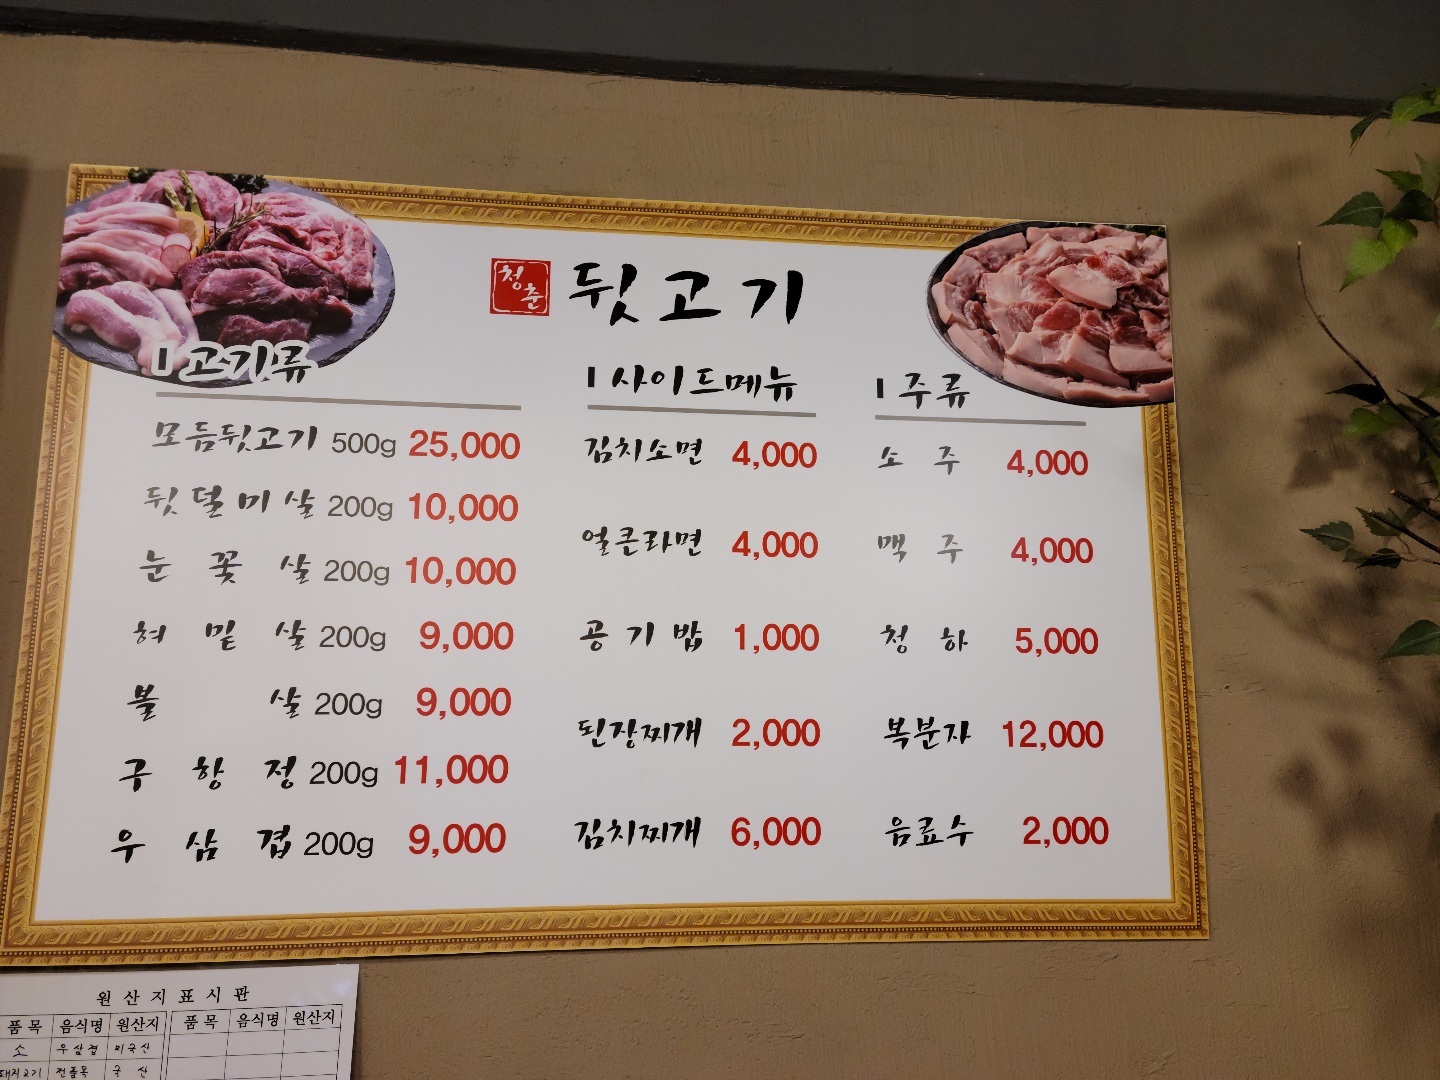 청춘 뒷고기
고기류
모듬뒷고기 500g 25,000
뒷덜미살 200g 10,000
눈꽃살 200g 10,000
혀밑살 200g 9,000
볼살 200g 9,000
구항정 200g 11,000
우삼겹 200g 9,000
사이드메뉴
김치소면 4,000
얼큰라면 4,000
공기밥 1,000
된장찌개 2,000
김치찌개 6,000
주류
소주 4,000
맥주 4,000
청하 5,000
복분자 12,000
음료수 2,000
원산지표시판
품목 음식명 원산지 품목 음식명 원산지
소 우삼겹 미국산
돼지고기 전품목 국산